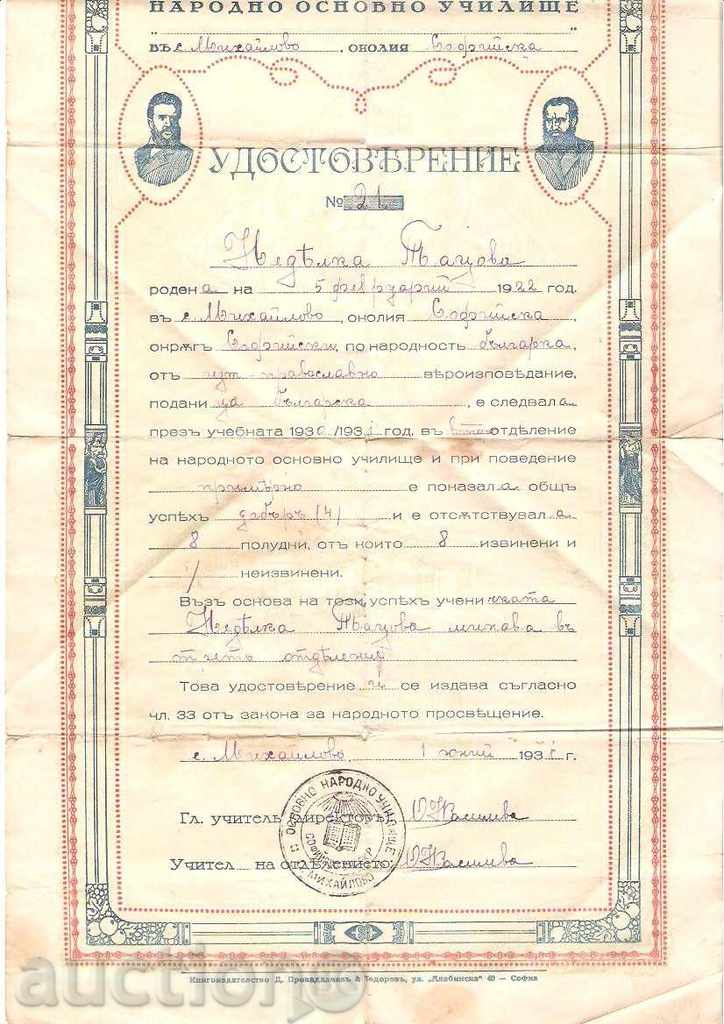 НАРОДНО ОСНОВНО УЧИЛИЩЕ
въ с. Михайлово, околия Софийска
УДОСТОВѢРЕНИЕ
№ 21
Недѣлка Тацова
родена на 5 февруарий 1922 год.
въ с. Михайлово, околия Софийска,
окрѫгъ Софийски, по народность българка,
отъ православно вѣроизповѣдание,
подани ца българска, е следвала
презъ учебната 1930/1931 год. въ отдѣление
на народното основно училище и при поведение
примѣрно е показала общъ
успѣхъ добъръ (4) и е отсѫтствувала
8 полудни, отъ които 8 извинени и
/ неизвинени.
Възъ основа на този успѣхъ учени чката
Недѣлка Тацова минава въ
трето отдѣление
Това удостовѣрение й се издава съгласно
чл. 33 отъ закона за народното просвѣщение.
с. Михайлово, 1 юний 1931 г.
Гл. учитель директоръ: Василева
Учител на отдѣлението: Василева
ОСНОВНО НАРОДНО УЧИЛИЩЕ
МИХАЙЛОВО
Книгоиздателство Д. & Тодоровъ, ул. 40 — София
auction